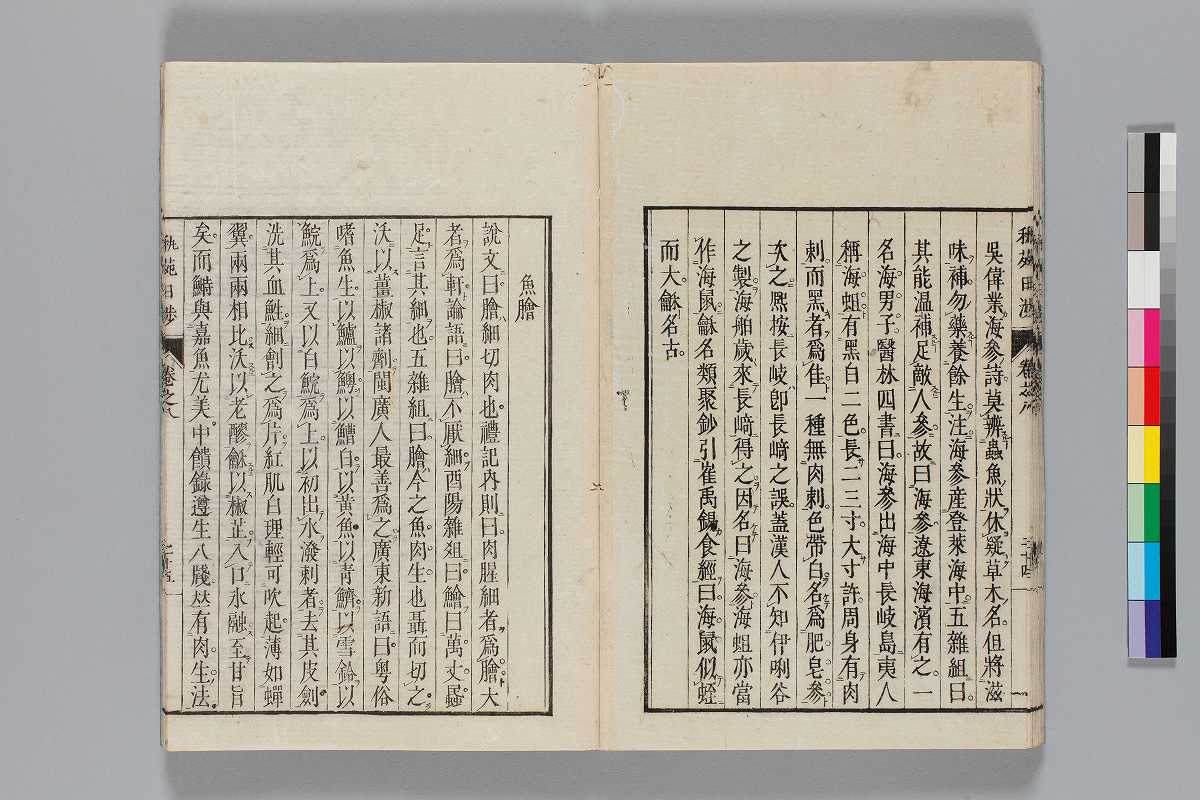 秇苑日涉
卷之六
二十四
吳偉業海參詩莫辨蟲魚狀休疑草木名但將滋
味補勿藥養餘生注海參產登萊海中五雜組曰
其能溫補足敵人參故曰海參遼東海濱有之一
名海男子醫林四書曰海參出海中長岐島夷人
稱海蛆有黑白二色長二三寸大寸許周身有肉
刺而黑者爲佳一種無肉刺色帶白名爲肥皂參
次之凞按長岐卽長﨑之誤蓋漢人不知伊唎谷
之製海舶歲來長﨑得之因名曰海參海蛆亦當
作海鼠龢名類聚鈔引崔禹錫食經曰海鼠似蛭
而大龢名古
魚膾
說文曰膾細切肉也禮記內則曰肉腥細者爲膾大
者爲軒論語曰膾不厭細酉陽雜俎曰鱠曰萬丈蟁
足言其細也五雜組曰膾今之魚肉生也聶而切之
沃以薑椒諸劑閩廣人最善爲之廣東新語曰粵俗
嗜魚生以鱸以䱎以鰽白以黃魚以青鱭以雪鈴以
鯇爲上又以白鯇爲上以初出水潑剌者去其皮劍
洗其血鮏細劊之爲片紅肌白理輕可吹起薄如蟬
翼兩兩相比沃以老醪龢以椒芷入口氷融至甘旨
矣而鰣與嘉魚尤美中饋錄遵生八牋竝有肉生法
秇苑日涉
卷之六
二十五